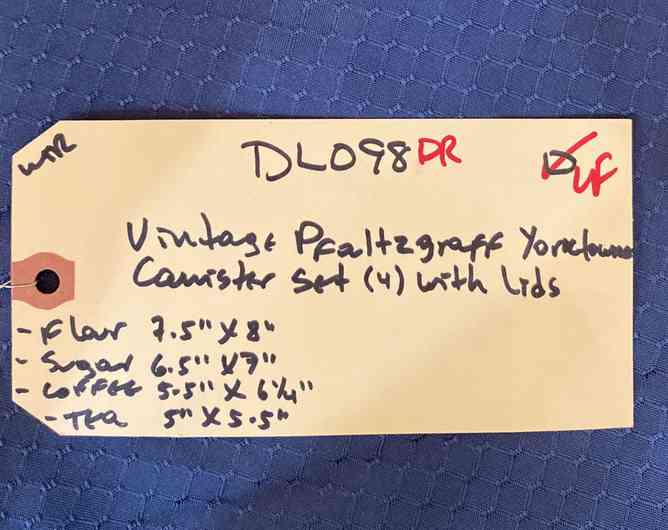 WTR
DL098 DR
D UF
Vintage Pfaltzgraff Yorktowne
Canister Set (4) with Lids
- Flour 7.5" X 8"
- Sugar 6.5" X 7"
- Coffee 5.5" X 6 1/4"
- Tea 5" X 5.5"